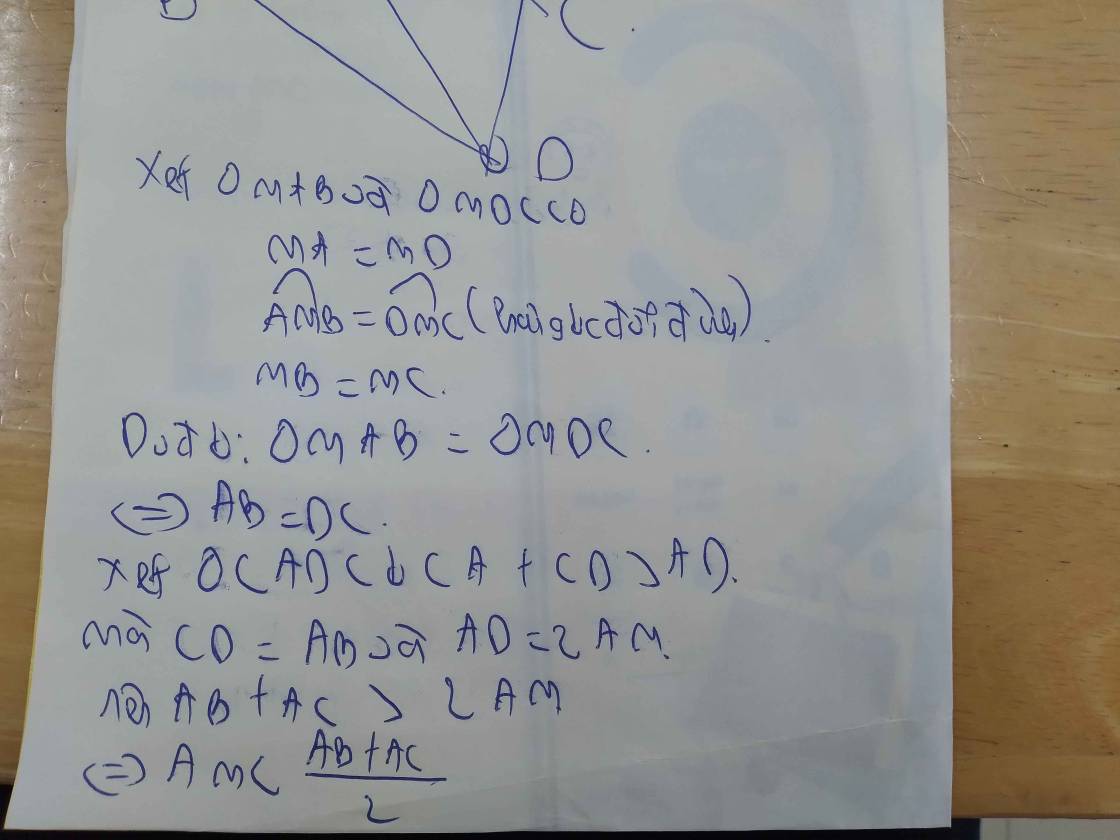 B C
D
Xét Δ MAB và Δ MDC có
MA = MD
AMB = DMC (hai góc đối đỉnh).
MB = MC.
Do đó: Δ MAB = Δ MDC.
<=> AB = DC.
Xét Δ CAD có CA + CD > AD.
mà CD = AB và AD = 2 AM.
nên AB + AC > 2 AM
<=> AM < \frac{AB + AC}{2}